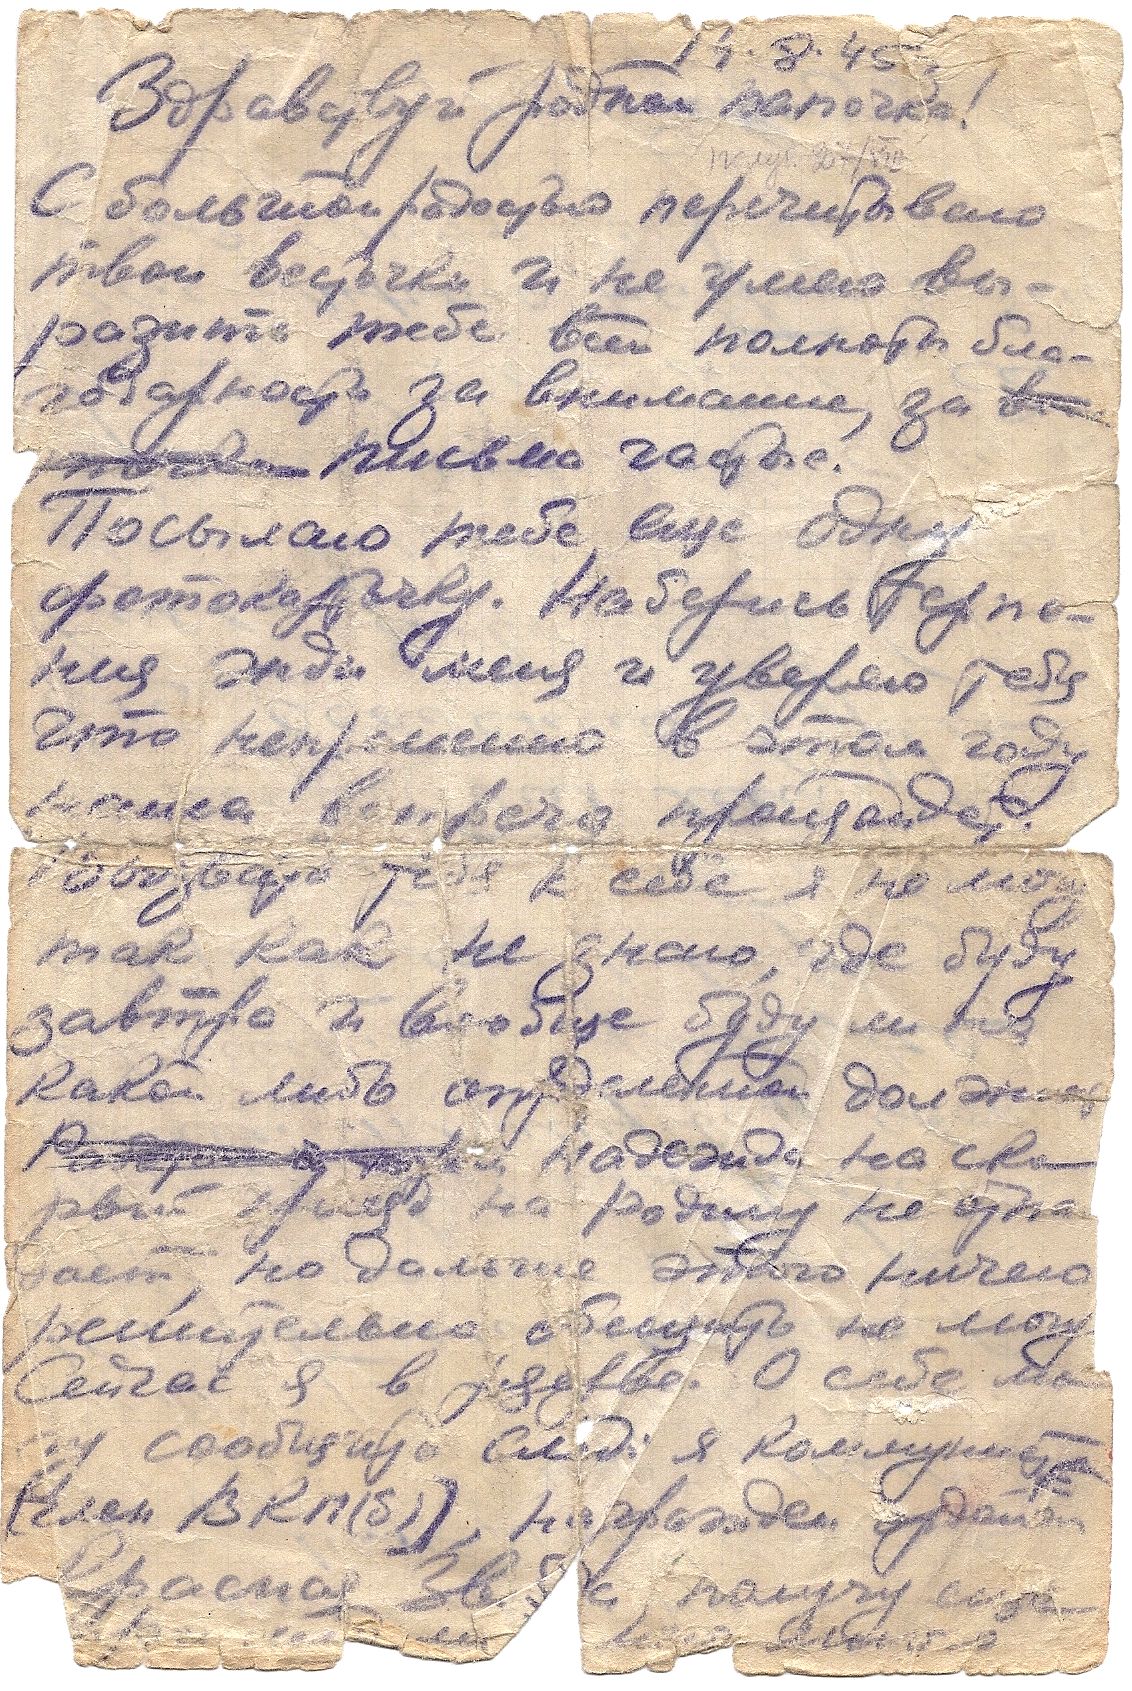 14.8.45
Здравствуй родной папочка!
получ.
С большой радостью перечитываю
твои весточки и не умею вы-
разить тебе всей полноты бла-
годарность за внимание, за
письма частые.
Посылаю тебе еще одну
фотокарточку. Наберись терпе-
ния жди меня и уверяю тебя
что непременно в этом году
наша встреча произойдет.
тебя к себе я не могу
так как не знаю, где буду
завтра и вообще буду ли на
какой либо определенной
надежда на ско-
рый приезд на родину не отпа-
дает, но дальше этого ничего
решительно обещать не могу
Сейчас я в резерве. О себе мо-
гу сообщить след: я коммунист
(член ВКП(б)), награжден орденом
Красная Звезда, получу